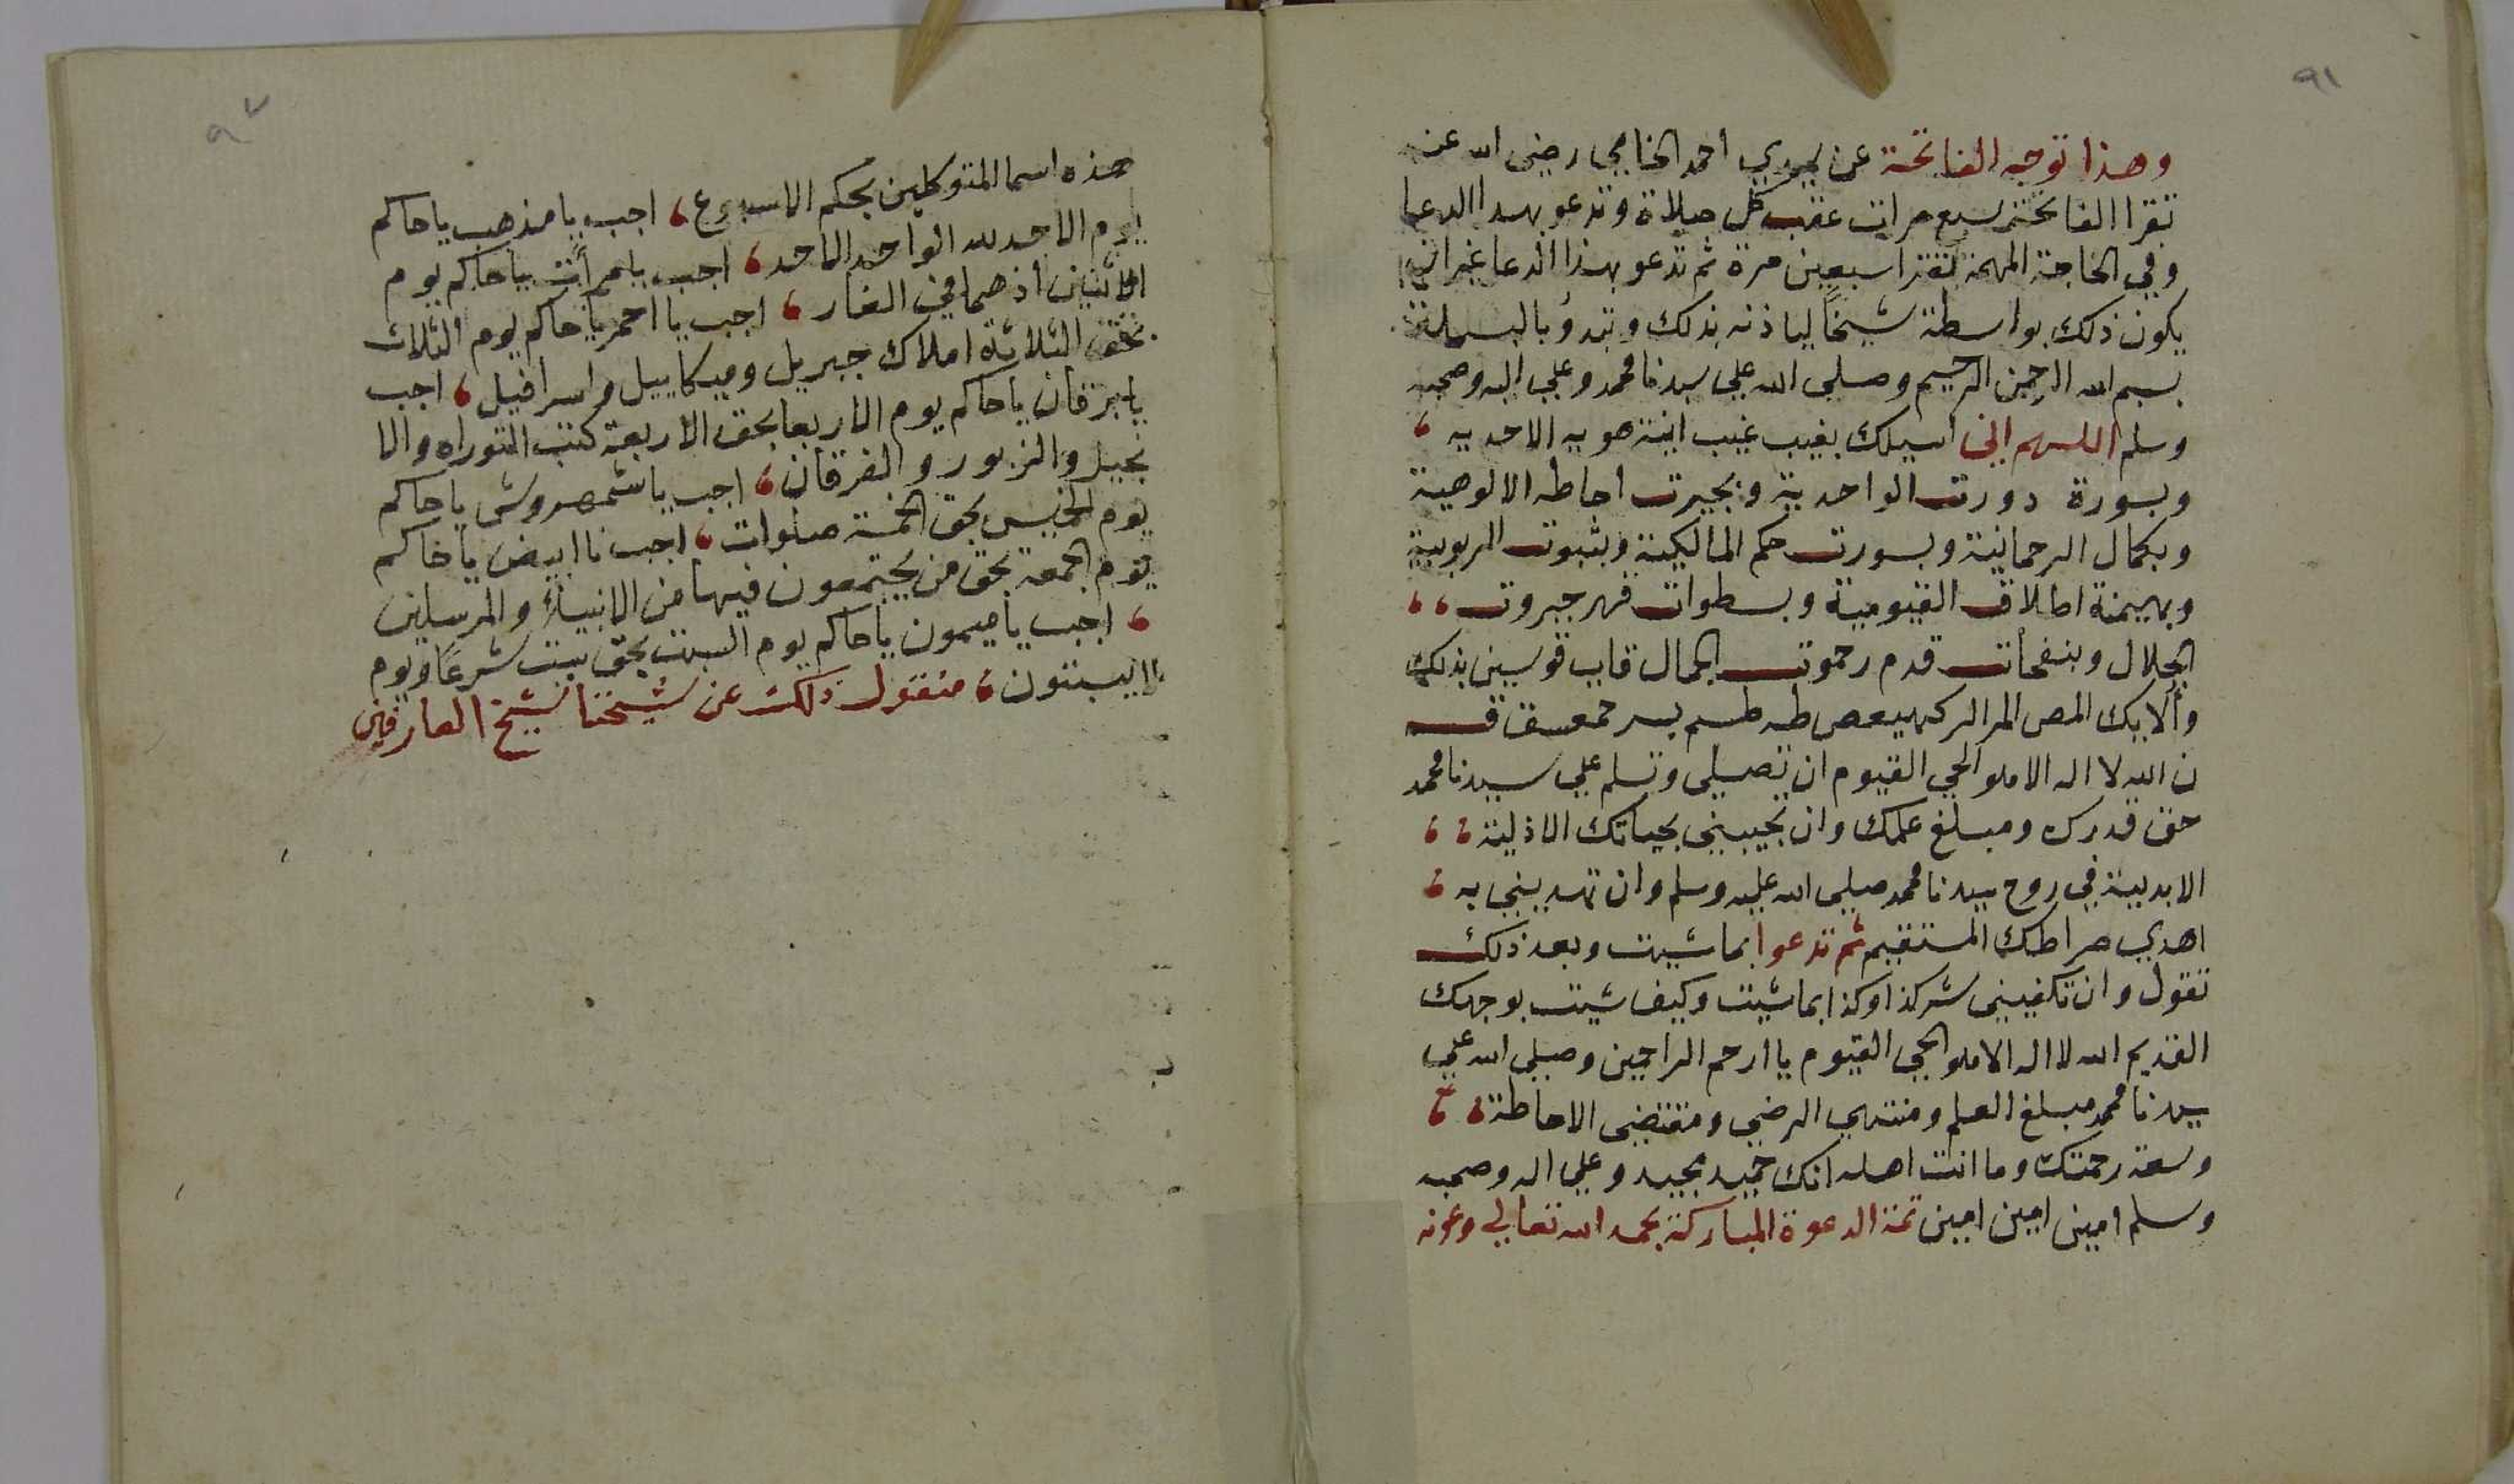 ٩١
وهذا توجه الفاتحة عن سيدي احمد الخامي رضى الله عنه
تقرا الفاتحة سبع مرات عقب كل صلاة وتدعو بهذا الدعا
وفي الحاجة المهمة تقرا سبعين مرة ثم تدعو بهذا الدعا غير ان
يكون ذلك بواسطة شيخاً لياذنه بذلك وتبدؤ بالبسملة
بسم الله الرحمن الرحيم وصلى الله علي سيدنا محمد وعلي اله وصحبه
وسلم اللهم اني اسيلك بغيب غيب انية هويه الاحديه
وبسورة دورت الواحدية وبحيرت احاطه الالوهية
وبكمال الرحمانية وبسورت حكم المالكية وبثبوت الربوبية
وبهيمنة اطلاق القيومية وبسطوات قهر جبروت
الجلال وبنفحات قدم رحموت الجمال قاب قوسين بذلك
وألايك المص المر الر كهيعص طه طسم يس حمعسق ق
ن الله لا اله الا هو الحي القيوم ان تصلي وتسلم علي سيدنا محمد
حق قدرك ومبلغ علمك وان تحييني بحياتك الاذلية
الابدية في روح سيدنا محمد صلي الله عليه وسلم وان تهديني به
اهدي صراطك المستقيم ثم تدعوا بما شيت وبعد ذلك
تقول وان تكفيني شر كذا وكذا بما شيت وكيف شيت بوجهك
القديم الله لا اله الا هو الحي القيوم يا ارحم الراحمين وصلي الله علي
سيدنا محمد مبلغ العلم ومنتهي الرضي ومقتضى الاحاطة
وسعة رحمتك وما انت اهله انك حميد مجيد وعلي اله وصحبه
وسلم امين امين امين تمت الدعوة المباركة بحمد الله تعالي وعونه
هذه اسما المتوكلين بحكم الاسبوع اجب يا مذهب يا حاكم
يوم الاحد لله الواحد الاحد اجب يا مرأت يا حاكم يوم
الاثنين اذ هما في الغار اجب يا احمر يا حاكم يوم الثلاث
بحق الثلاثة املاك جبريل وميكاييل واسرافيل اجب
يا برقان يا حاكم يوم الاربعا بحق الاربعة كتب التوراه والا
نجيل والزبور والفرقان اجب يا شمهروش يا حاكم
يوم الخميس بحق الخمسة صلوات اجب يا ابيض يا حاكم
يوم الجمعه بحق من يجتمعون فيها من الانبياء والمرسلين
اجب يا ميمون يا حاكم يوم السبت بحق سبت شرعاً ويوم
لا يسبتون منقول ذلك عن شيخنا شيخ العارفين